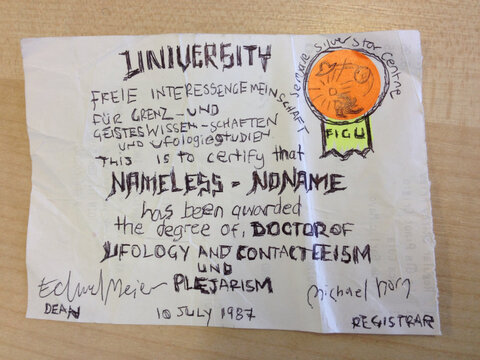 UNIVERSITY
FREIE INTERESSENGEMEINSCHAFT
FÜR GRENZ-UND
GEISTESWISSEN-SCHAFTEN
UND UFOLOGIESTUDIEN
THIS is to certify that
NAMELESS - NONAME
has been awarded
the degree of, DOCTOR OF
UFOLOGY AND CONTACTEEISM
UND
PLEJARISM
Semjase Silver Star Centre
FIGU
Edward Meier
DEAN
10 JULY 1987
Michael Horn
REGISTRAR